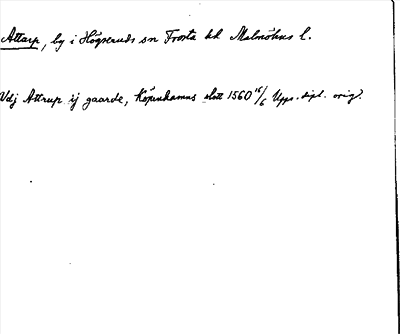 Attarp, by i Högseröds sn Frosta hd Malmöhus l.
Vdj Attrup ij gaarde, Köpenhamns slott 1560 16/6 Upps. dipl. orig.